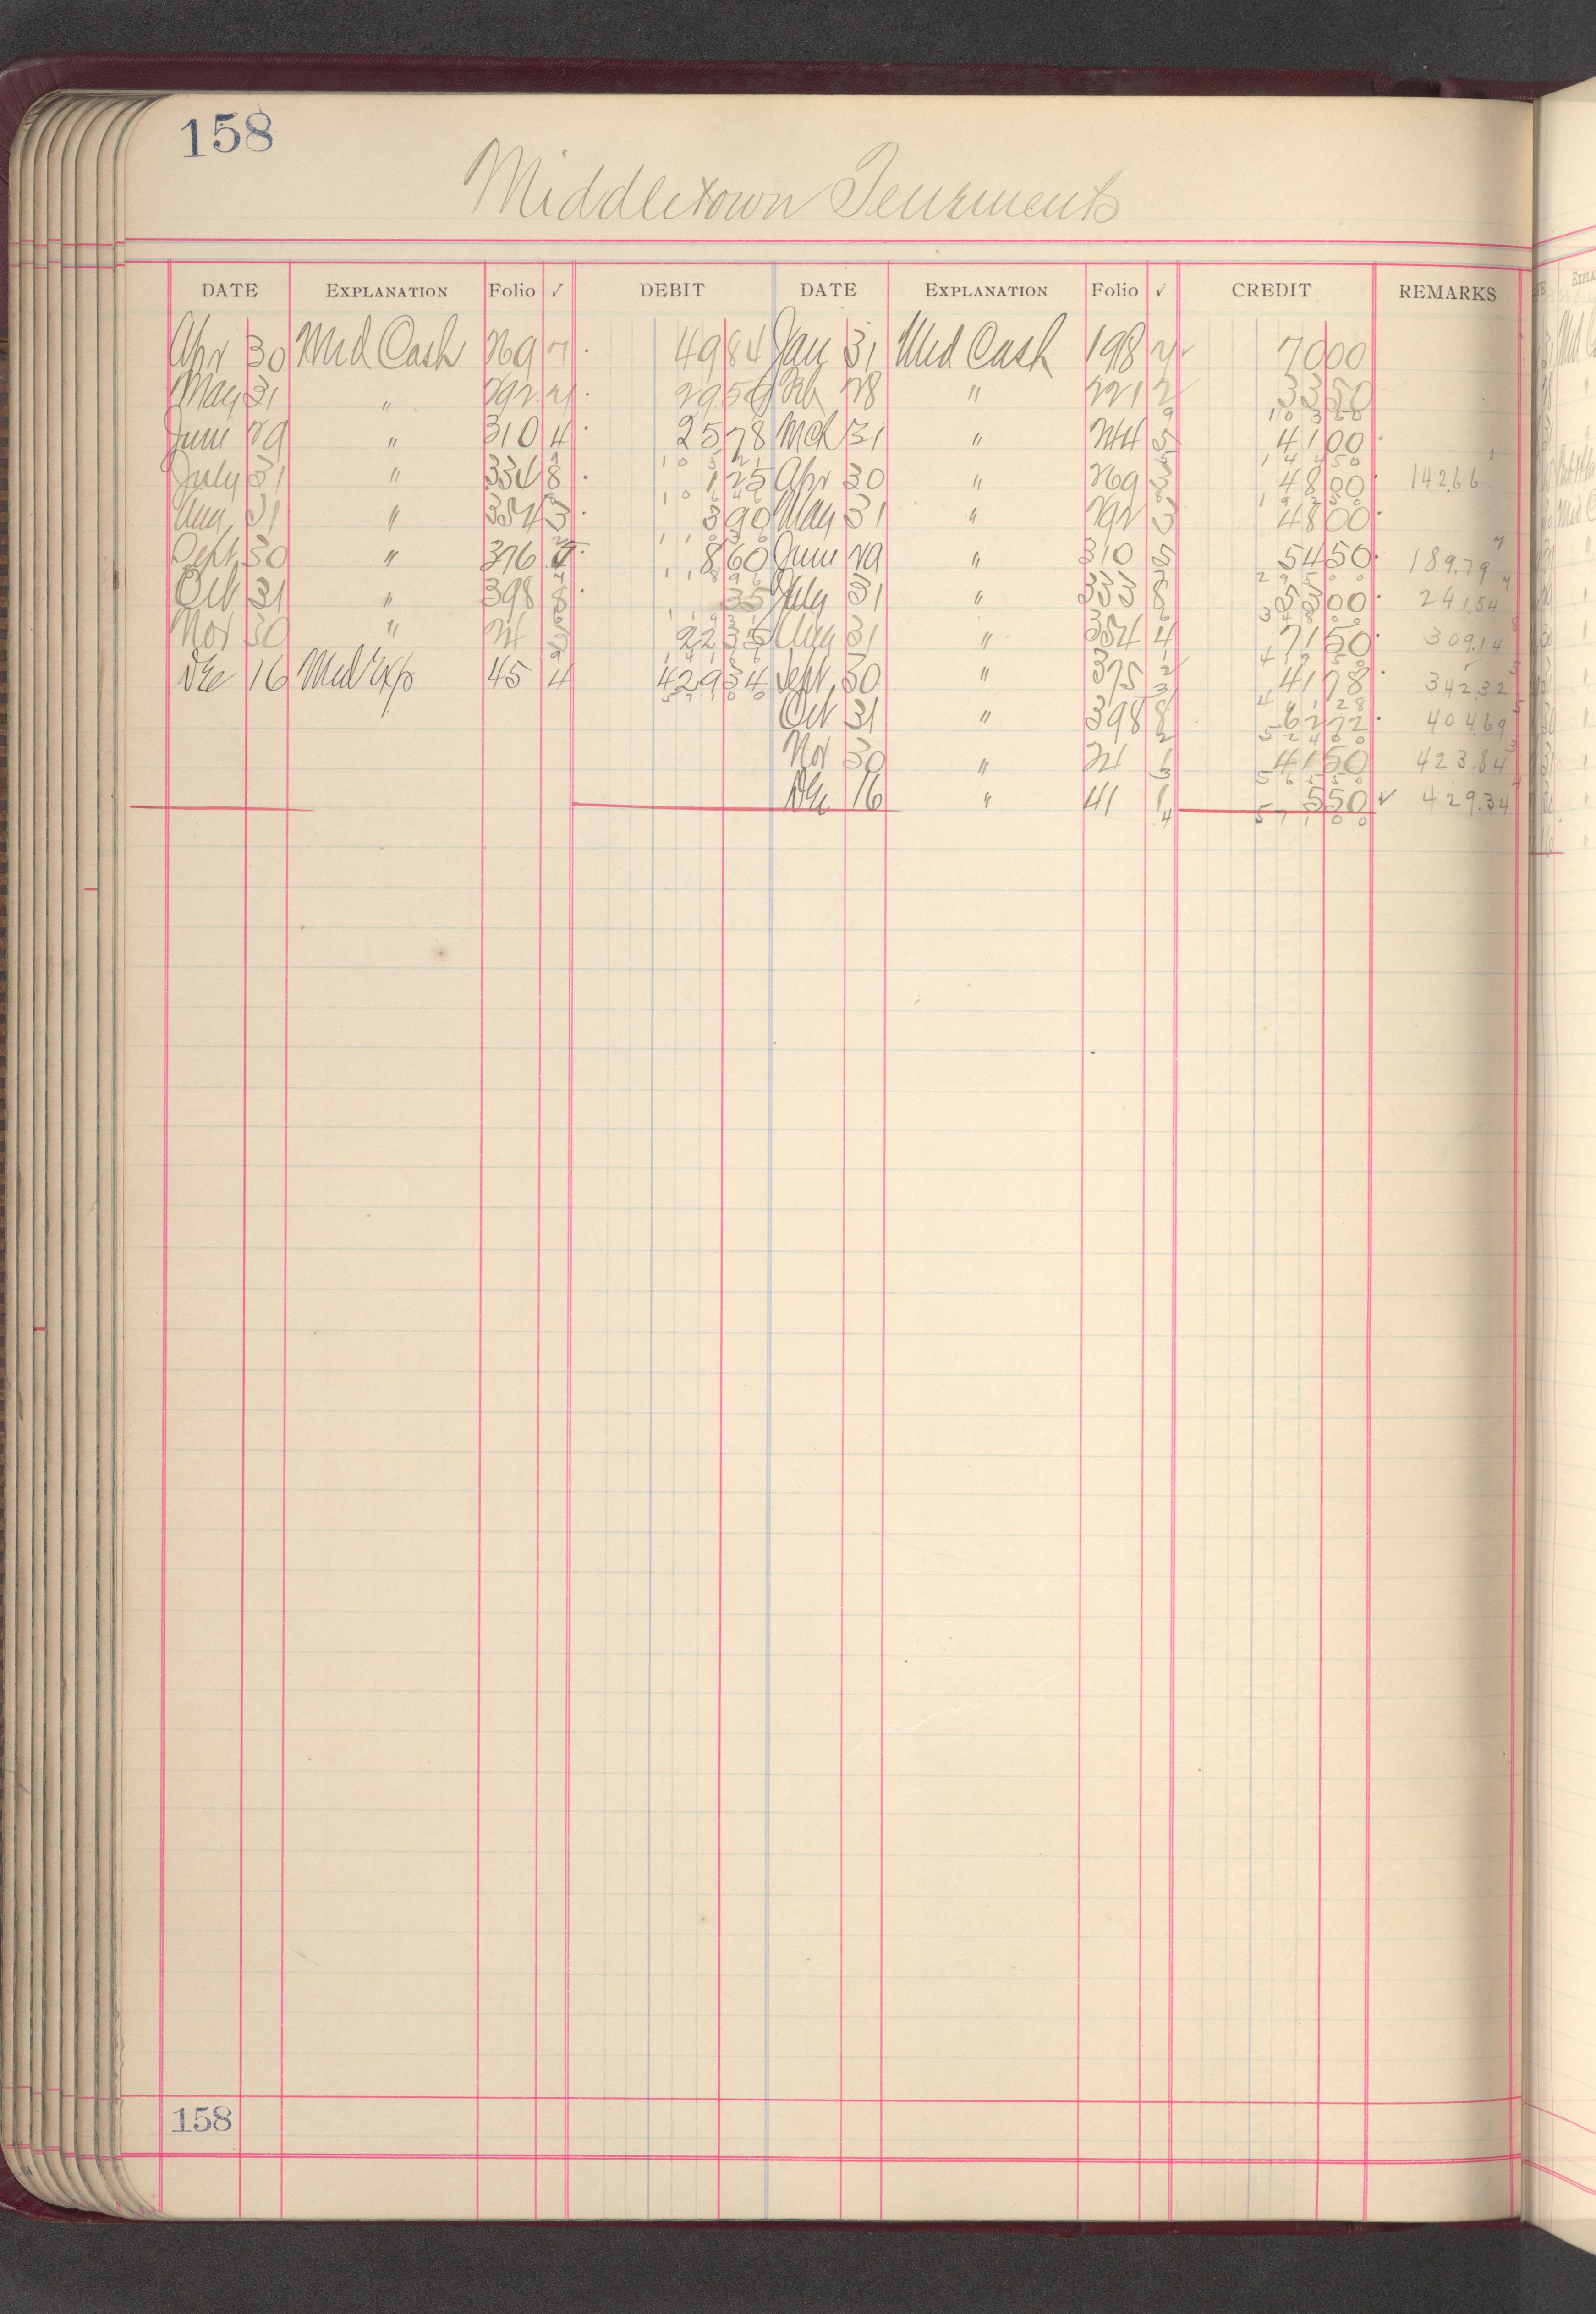 158
Middletown Tenements
DATE EXPLANATION Folio √ DEBIT DATE EXPLANATION Folio √ CREDIT REMARKS
Apr 30 Md Cash 269 49 84 Jan 31 Md Cash 198 2 70 00
May 31 " 292 2 29 59 Feb 28 " 221 2 33 50
June 29 " 310 4 25 78 Mch 31 " 244 41 00
July 31 " 334 8 1 25 Apr 30 " 269 48 00 142.66
Aug 31 " 354 3 3 90 May 31 " 292 3 48 00
Sept 30 " 376 8 60 June 29 " 310 54 50 189.79
Oct 31 " 398 8 35 July 31 " 333 8 53 00 241.54
Nov 30 " 21 22 35 Aug 31 " 354 4 71 50 309.14
Dec 16 Md Exp 45 4 429 34 Sept 30 " 375 41 78 342.32
Oct 31 " 398 8 62 72 404.69
Nov 30 " 21 41 50 423.84
Dec 16 " 41 5 50 √ 429.34
158